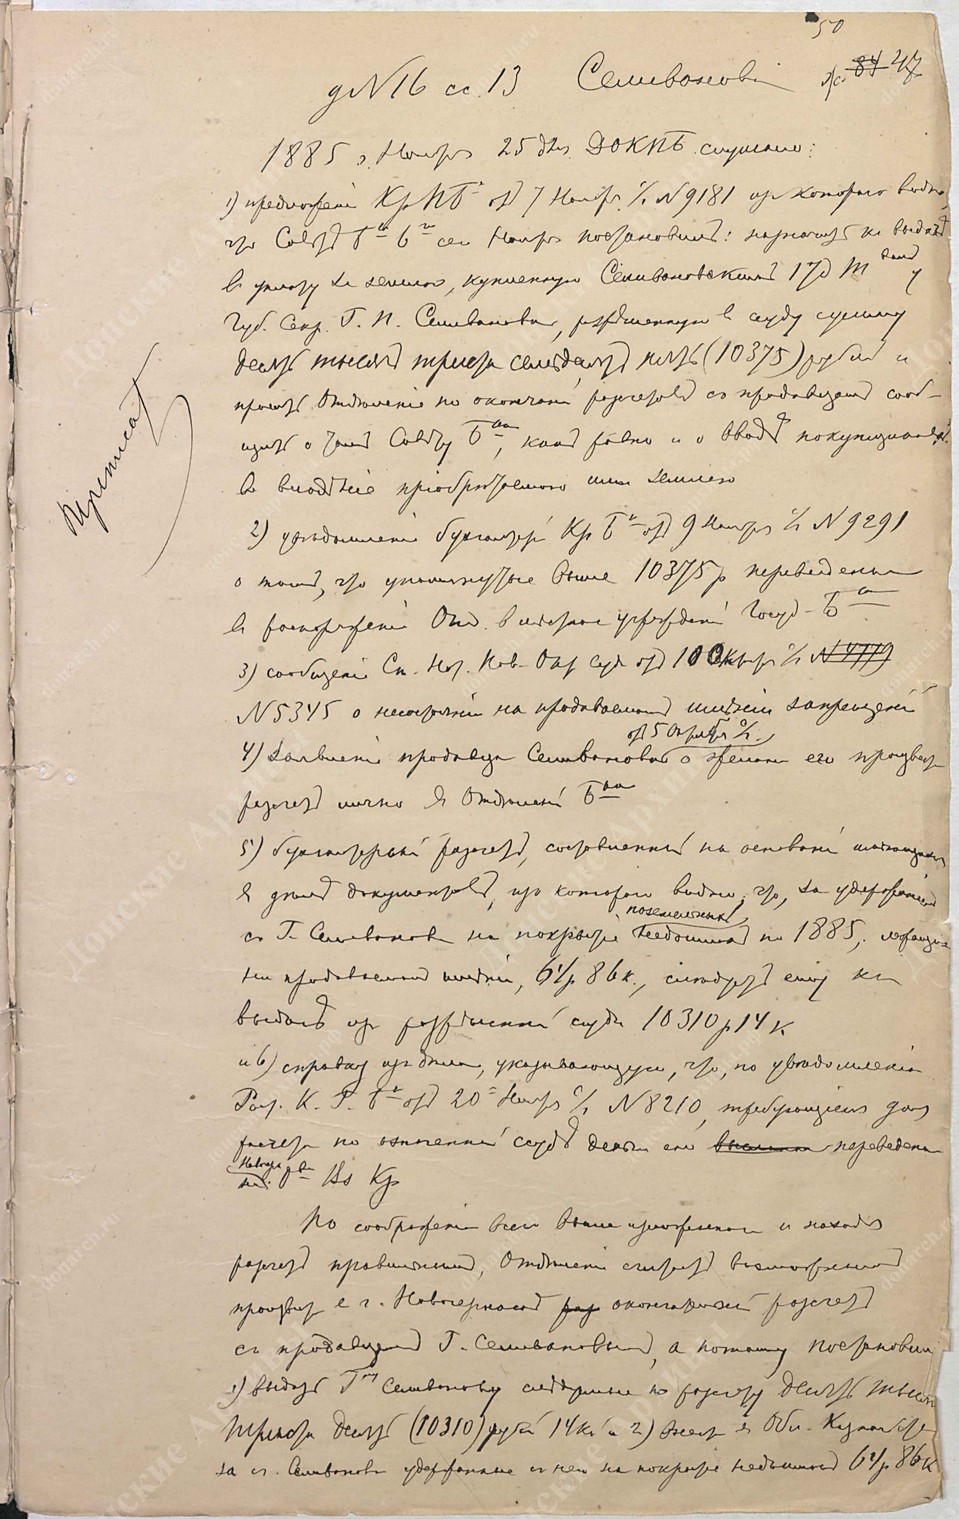 50
84 47
д №16 сс. 13 Селиванов
1885 г. Ноябр 25 дня ДОКПБ слушало:
1) предложение Кр П Бка от 7 Ноябр. с/г №9181 из котораго видно,
что Совет Бка 6го сего Ноябр постановил: назначить к выдаче
в уплату за землю, купленную Селивановским 17д Твом у
Губ. Секр. Г. П. Селиванова, разрешенную в ссуду сумму
десять тысяч триста семьдесят пять (10375) рублей и
просит Отделение по окончании разсчетов с продавцом сооб-
щить о том Совету Бка, как равно и о вводе покупщиков
во владение приобретаемою ими землею
2) уведомление бухгалтерии Кр Бка от 9 Ноябр с/г №9291
о том, что упомянутые выше 10375 р переведены
в распоряжение Отд. в местное учреждение Госуд. Бка
3) сообщение Ст. Нот. Нов. Окр Суда от 10 Октябр с/г №4779
№5345 о неимении на продаваемом имении запрещений
от 5 Октября с/г.
4) заявление продавца Селиванова о желании его произвести
разсчет лично в Отделении Бка
5) бухгалтерский разсчет, составленный на основании имеющихся
в деле документов, из котораго видно, что, за удержанием
поземельных
с Г. Селиванова на покрытие недоимок по 1885, лежащих
на продаваемом имении, 64р 86к., следует ему к
выдаче из разрешенной ссуды 10310 р 14 к
и 6) справку из дела, указывающую, что, по уведомлению
К. Г. Бка от 20 Ноябр с/г №8210, требующиеся для
разсчета по означенной ссуде деньги переведены
По соображении всего выше изложеннаго и находя
разсчет правильным, Отделение считает возможным
произвести в г. Новочеркасске окончательный разсчет
с продавцом Г. Селивановым, а потому постановил
1) выдать Гну Селиванову следуемые по разсчету десять тысяч
триста десять (10310) рублей 14 к. и 2) внести в Обл. Казначейство
за г. Селиванова удержанные с него на покрытие недоимок 64р 86к
Читал